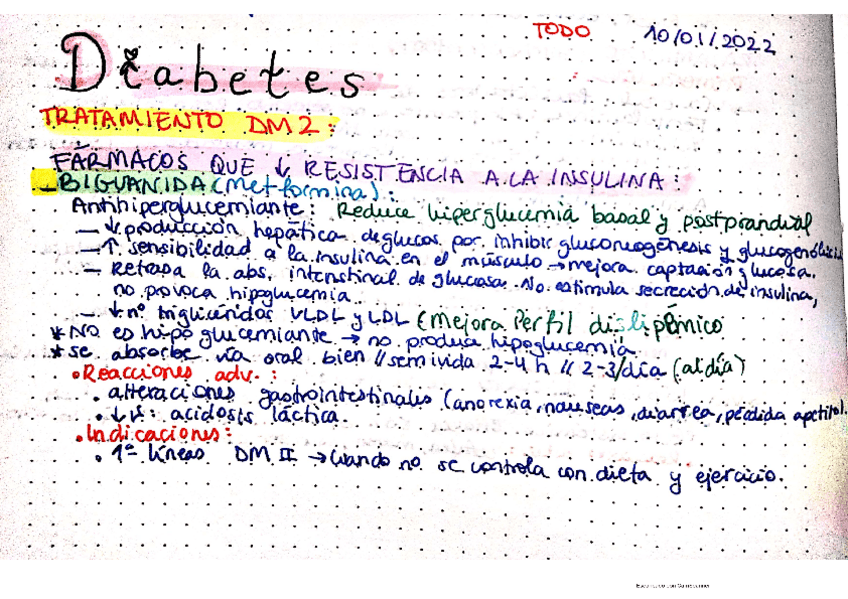 TODO 10/01/2022
Diabetes
TRATAMIENTO DM2:
FÁRMACOS QUE ↓ RESISTENCIA A LA INSULINA:
_BIGUANIDA (metformina):
Antihiperglucemiante: Reduce hiperglucemia basal y postprandial
— ↓ producción hepática de glucos por inhibir gluconeogénesis y glucogenólisis
— ↑ sensibilidad a la insulina en el músculo → mejora captación glucosa.
— Retrasa la abs. intenstinal de glucosa. No estimula secreción de insulina,
no provoca hipoglucemia
— ↓ nº trigliceridos VLDL y LDL (mejora Perfil dislipémico
* No es hipoglucemiante → no produce hipoglucemia
* se absorbe vía oral bien // semivida 2-4 h // 2-3/día (al día)
• Reacciones adv.:
• alteraciones gastrointestinales (anorexia, nauseas, diarrea, pérdida apetito).
• ↓ : acidosis láctica.
• Indicaciones:
• 1ª líneas DM II → Cuando no se controla con dieta y ejercicio.
Escaneado con CamScanner